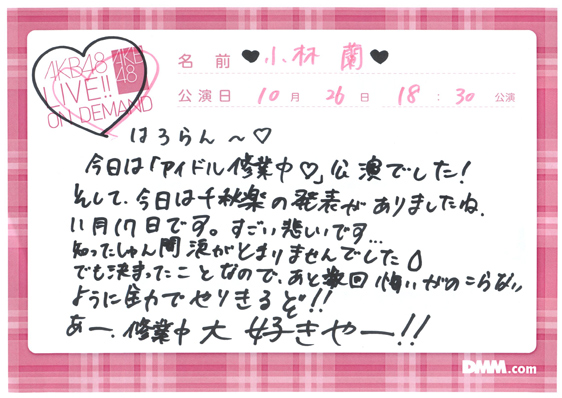 AKB48
LIVE!!
ON DEMAND
AKB
48
名前 ♥小林 蘭♥
公演日 10月 26日 18:30 公演
はろらん〜♡
今日は「アイドル修業中♡」公演でした!
そして、今日は千秋楽の発表がありましたね。
11月17日です。すごい悲しいです...
知ったしゅん間涙がとまりませんでした
でも決まったことなので、あと数回悔いがのこらない
ように全力でやりきるぞ!!
あー、修業中大好きやー!!
DMM.com